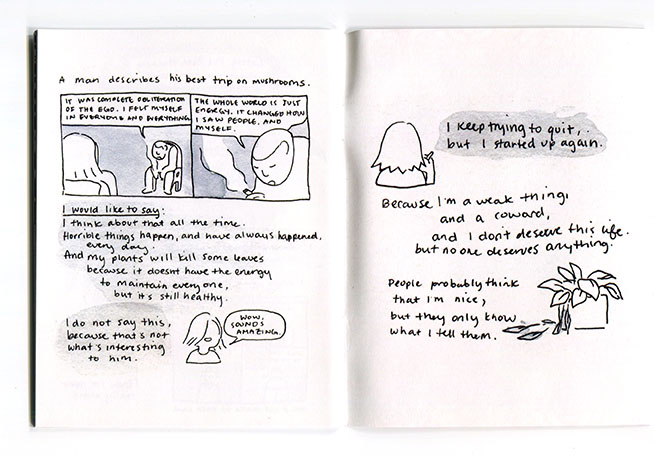 A man describes his best trip on mushrooms.
IT WAS COMPLETE OBLITERATION
OF THE EGO. I FELT MYSELF
IN EVERYONE AND EVERYTHING.
THE WHOLE WORLD IS JUST
ENERGY. IT CHANGED HOW
I SAW PEOPLE, AND
MYSELF.
I would like to say:
I think about that all the time.
Horrible things happen, and have always happened,
every day.
And my plants will kill some leaves
because it doesnt have the energy
to maintain everyone,
but it's still healthy.
I do not say this,
because that's not
what's interesting
to him.
WOW,
SOUNDS
AMAZING.
I keep trying to quit,
but I started up again.
Because I'm a weak thing,
and a coward,
and I don't deserve this life.
but no one deserves anything.
People probably think
that I'm nice,
but they only know
what I tell them.